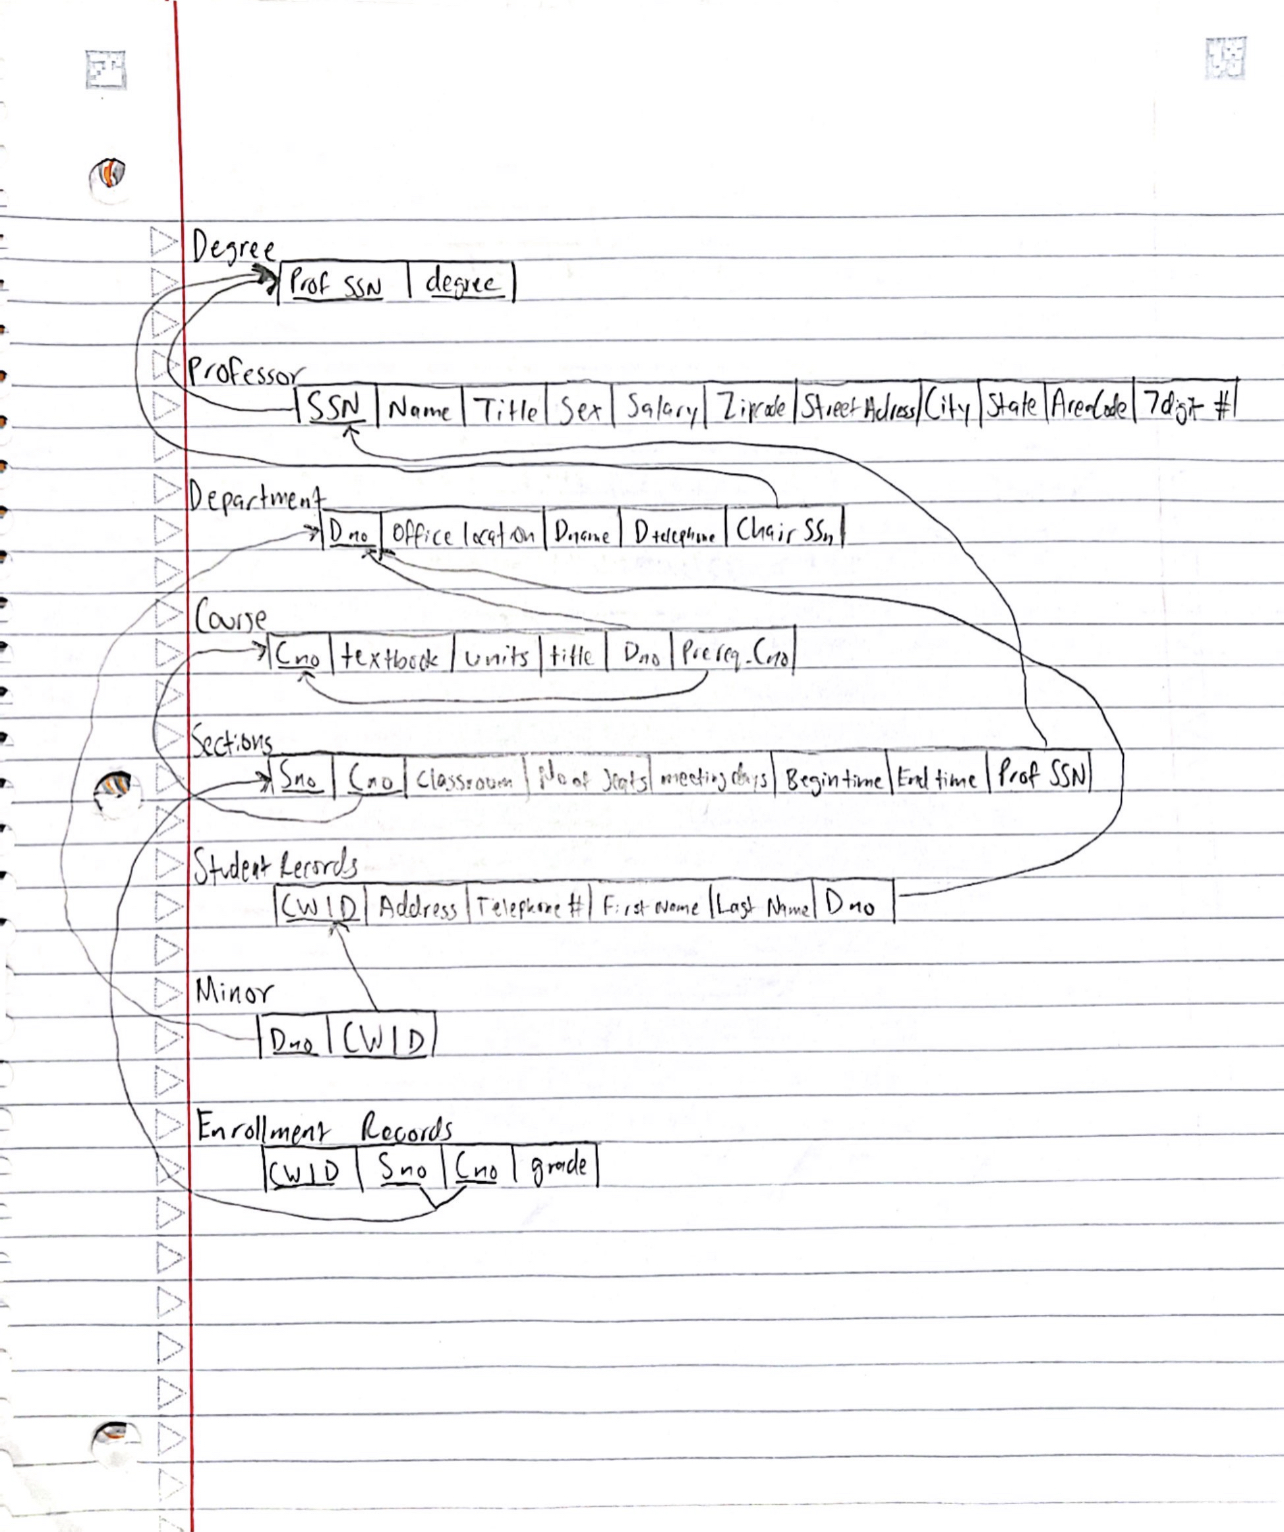 Degree
Prof SSN degree
Professor
SSN Name Title Sex Salary Zipcode Street Adress City State AreaCode 7digit #
Department
Dno Office location Dname Dtelephone Chair SSn
Course
Cno textbook units title Dno Prereq_Cno
Sections
Sno Cno Classroom No of Seats meeting days Begin time End time Prof SSN
Student Records
CWID Address Telephone # First Name Last Name Dno
Minor
Dno CWID
Enrollment Records
CWID Sno Cno grade